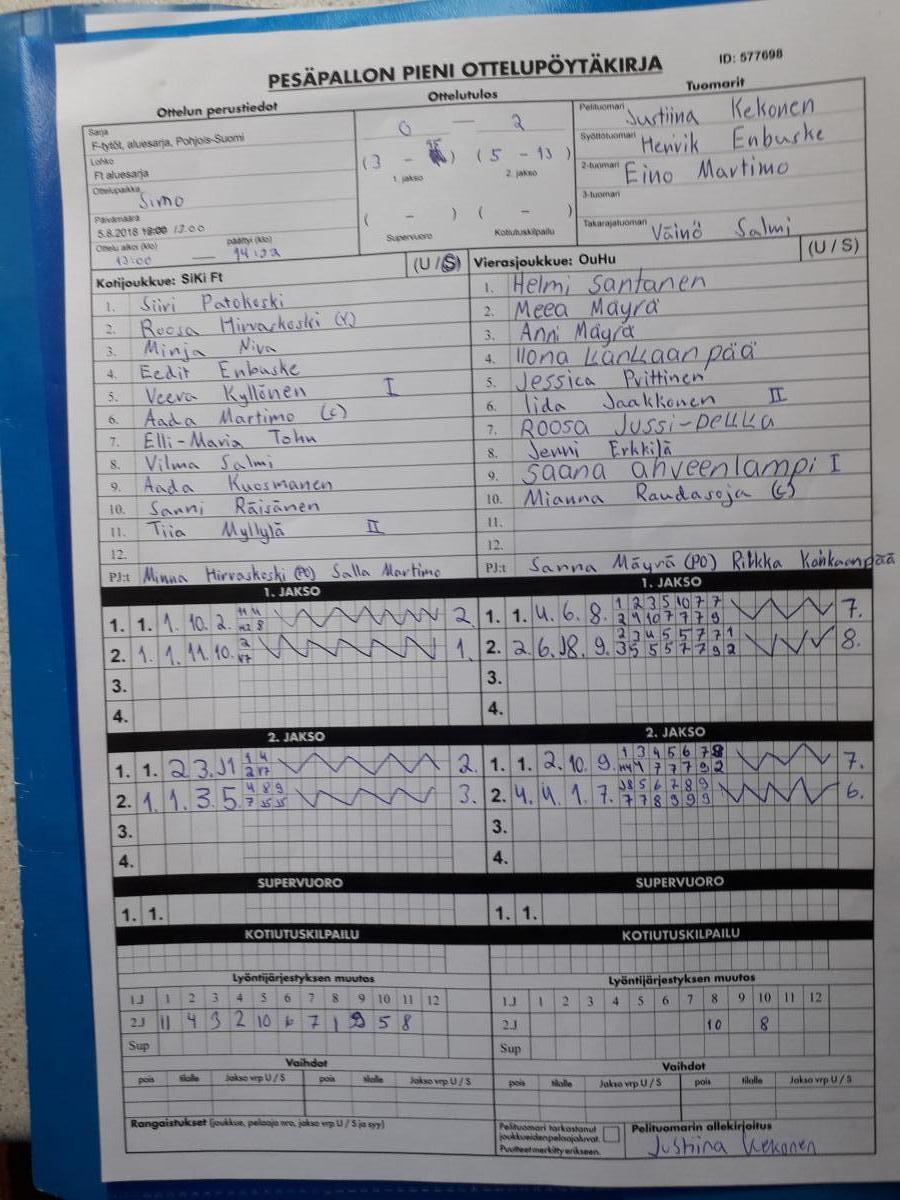 PESÄPALLON PIENI OTTELUPÖYTÄKIRJA ID: 577698
Ottelun perustiedot Ottelutulos Tuomarit
Sarja
F-tytöt, aluesarja, Pohjois-Suomi
Lohko
Ft aluesarja
Ottelupaikka Simo
Päivämäärä
5.8.2018 18:00 13.00
Ottelu alkoi (klo) päättyi (klo)
13:00 — 14:22
0 — 2
(3 - 15) (5 - 13)
1. jakso 2. jakso
( - ) ( - )
Supervuoro Kotiutuskilpailu
Pelituomari Justiina Kekonen
Syöttötuomari Henrik Enbuske
2-tuomari Eino Martimo
3-tuomari
Takarajatuomari Väinö Salmi
Kotijoukkue: SiKi Ft (U / S)
1. Siiri Patokoski
2. Roosa Hirvaskoski (V)
3. Minja Niva
4. Eedit Enbuske
5. Veera Kyllönen I
6. Aada Martimo (c)
7. Elli-Maria Tohu
8. Vilma Salmi
9. Aada Kuosmanen
10. Sanni Räisänen
11. Tiia Myllylä II
12.
PJ:t Minna Hirvaskoski (PO) Salla Martimo
Vierasjoukkue: OuHu (U / S)
1. Helmi Santanen
2. Meea Mäyrä
3. Anni Mäyrä
4. Ilona Kankaanpää
5. Jessica Priittinen
6. Iida Jaakkonen II
7. Roosa Jussi-Pekka
8. Jenni Erkkilä
9. Saana ahveenlampi I
10. Mianna Raudasoja (c)
11.
12.
PJ:t Sanna Mäyrä (PO) Riikka Kankaanpää
1. JAKSO 1. JAKSO
1. 1. 1. 10. 2. 2. 1. 1. 4. 6. 8. 1 2 3 5 10 7 7 7.
2. 1. 1. 11. 10. 1. 2. 2. 6. 8. 9. 8.
3. 3.
4. 4.
2. JAKSO 2. JAKSO
1. 1. 2 3. 11 2. 1. 1. 2. 10. 9. 1 3 4 5 6 7 8 7.
2. 1. 1. 3. 5. 4 8 9 3. 2. 4. 4. 1. 7. 6.
3. 3.
4. 4.
SUPERVUORO SUPERVUORO
1. 1. 1. 1.
KOTIUTUSKILPAILU KOTIUTUSKILPAILU
Lyöntijärjestyksen muutos Lyöntijärjestyksen muutos
1J 1 2 3 4 5 6 7 8 9 10 11 12 1J 1 2 3 4 5 6 7 8 9 10 11 12
2J 11 4 3 2 10 6 7 1 9 5 8 2J 10 8
Sup Sup
Vaihdot Vaihdot
pois tilalle Jakso vrp U / S pois tilalle Jakso vrp U / S pois tilalle Jakso vrp U / S pois tilalle Jakso vrp U / S
Rangaistukset (joukkue, pelaaja nro, jakso vrp U / S ja syy)
Pelituomari tarkastanut
joukkueiden pelaajaluvat.
Puutteet merkitty erikseen.
Pelituomarin allekirjoitus
Justiina Kekonen